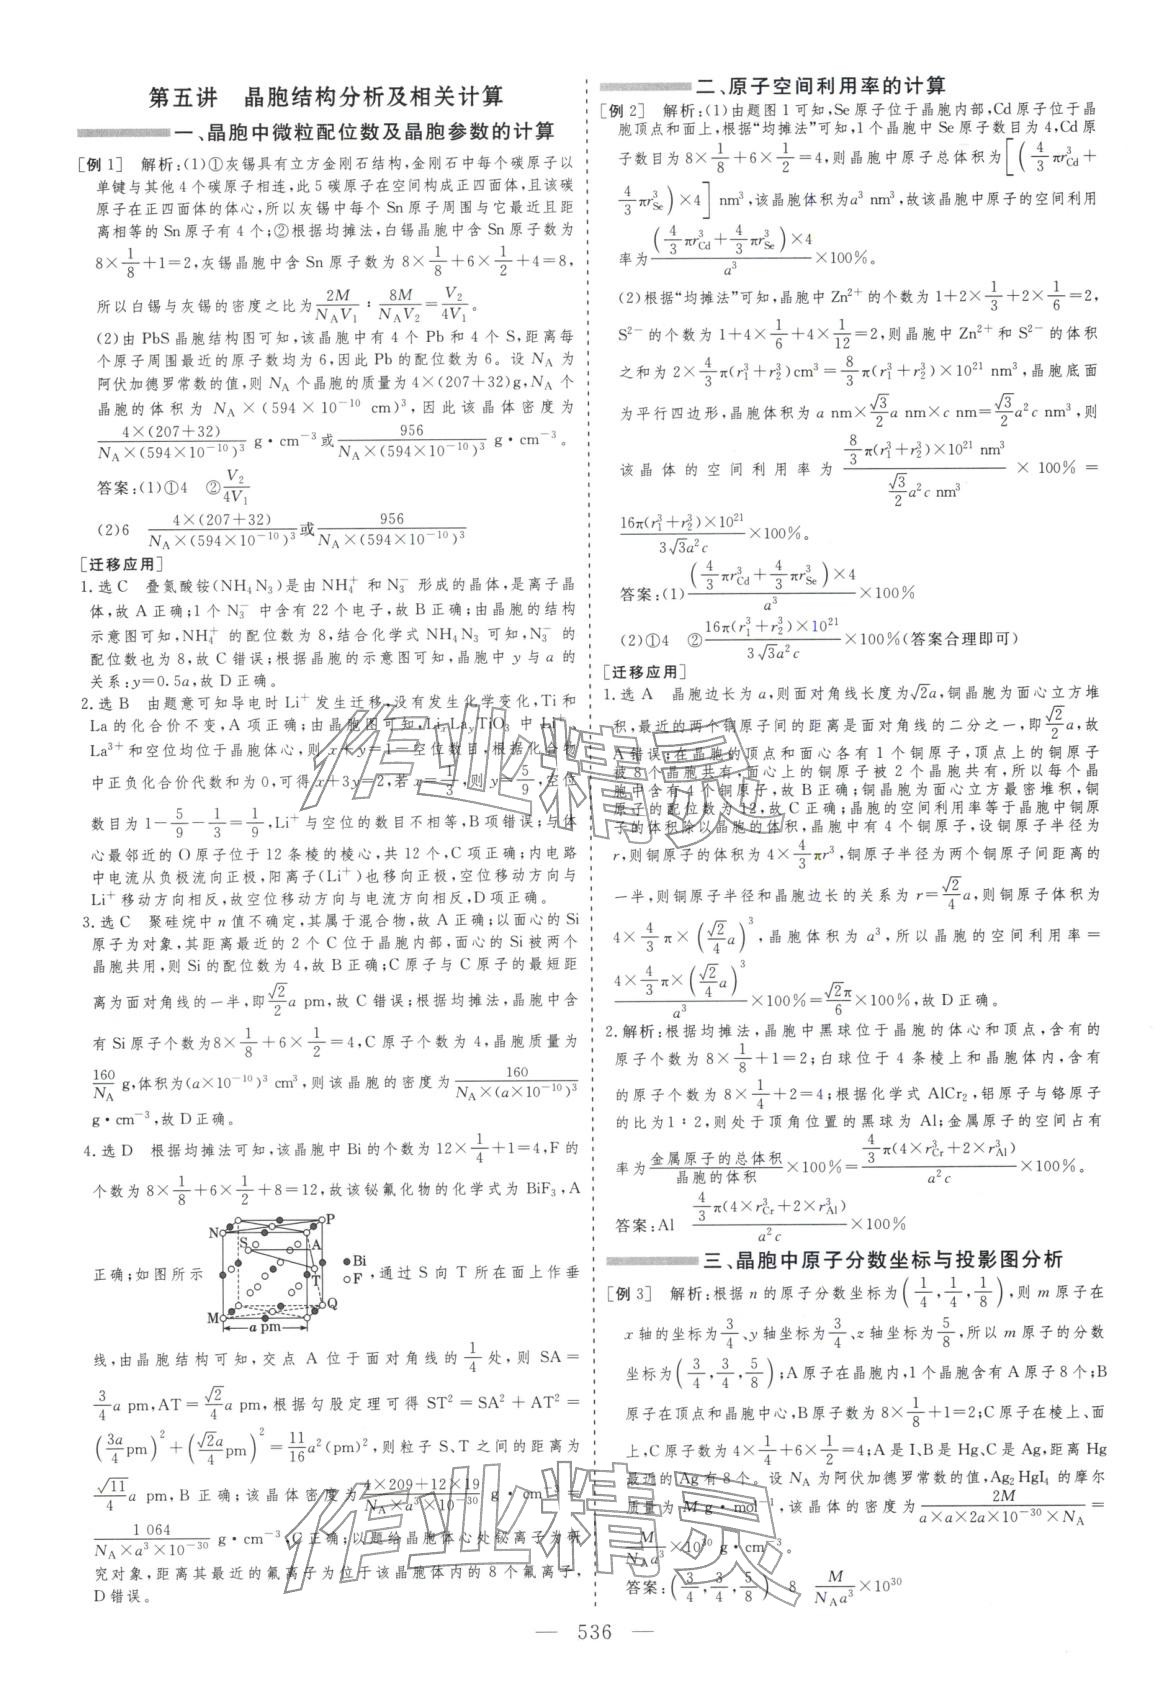 第五讲　晶胞结构分析及相关计算
一、晶胞中微粒配位数及晶胞参数的计算
[例1]　解析:(1)①灰锡具有立方金刚石结构,金刚石中每个碳原子以
单键与其他4个碳原子相连,此5碳原子在空间构成正四面体,且该碳
原子在正四面体的体心,所以灰锡中每个Sn原子周围与它最近且距
离相等的Sn原子有4个;②根据均摊法,白锡晶胞中含Sn原子数为
8×1/8+1=2,灰锡晶胞中含Sn原子数为8×1/8+6×1/2+4=8,
所以白锡与灰锡的密度之比为2M/(N_A V₁)∶8M/(N_A V₂)=V₂/(4V₁)。
(2)由PbS晶胞结构图可知,该晶胞中有4个Pb和4个S,距离每
个原子周围最近的原子数均为6,因此Pb的配位数为6。设N_A为
阿伏加德罗常数的值,则N_A个晶胞的质量为4×(207+32)g,N_A个
晶胞的体积为N_A×(594×10⁻¹⁰ cm)³,因此该晶体密度为
4×(207+32)/(N_A×(594×10⁻¹⁰)³) g·cm⁻³或956/(N_A×(594×10⁻¹⁰)³) g·cm⁻³。
答案:(1)①4　②V₂/(4V₁)
(2)6　4×(207+32)/(N_A×(594×10⁻¹⁰)³)或956/(N_A×(594×10⁻¹⁰)³)
[迁移应用]
1.选C　叠氮酸铵(NH₄N₃)是由NH₄⁺和N₃⁻形成的晶体,是离子晶
体,故A正确;1个N₃⁻中含有22个电子,故B正确;由晶胞的结构
示意图可知,NH₄⁺的配位数为8,结合化学式NH₄N₃可知,N₃⁻的
配位数也为8,故C错误;根据晶胞的示意图可知,晶胞中y与a的
关系:y=0.5a,故D正确。
2.选B　由题意可知导电时Li⁺发生迁移,没有发生化学变化,Ti和
La的化合价不变,A项正确;由晶胞图可知,LiₓLa_yTiO₃中Li⁺、
La³⁺和空位均位于晶胞体心,则x+y=1-空位数目,根据化合物
中正负化合价代数和为0,可得x+3y=2,若x=1/3,则y=5/9,空位
数目为1-5/9-1/3=1/9,Li⁺与空位的数目不相等,B项错误;与体
心最邻近的O原子位于12条棱的棱心,共12个,C项正确;内电路
中电流从负极流向正极,阳离子(Li⁺)也移向正极,空位移动方向与
Li⁺移动方向相反,故空位移动方向与电流方向相反,D项正确。
3.选C　聚硅烷中n值不确定,其属于混合物,故A正确;以面心的Si
原子为对象,其距离最近的2个C位于晶胞内部,面心的Si被两个
晶胞共用,则Si的配位数为4,故B正确;C原子与C原子的最短距
离为面对角线的一半,即√2/2 a pm,故C错误;根据均摊法,晶胞中含
有Si原子数为8×1/8+6×1/2=4,C原子个数为4,晶胞质量为
160/N_A g,体积为(a×10⁻¹⁰)³ cm³,则该晶胞的密度为160/(N_A×(a×10⁻¹⁰)³)
g·cm⁻³,故D正确。
4.选D　根据均摊法可知,该晶胞中Bi的个数为12×1/4+1=4,F的
个数为8×1/8+6×1/2+8=12,故该铋氟化物的化学式为BiF₃,A
正确;如图所示
N P S A T M Q
a pm
●Bi
○F
,通过S向T所在面上作垂
线,由晶胞结构可知,交点A位于面对角线的1/4处,则SA=
3/4 a pm,AT=√2/4 a pm,根据勾股定理可得ST²=SA²+AT²=
(3a/4 pm)²+(√2a/4 pm)²=11/16 a²(pm)²,则粒子S、T之间的距离为
√11/4 a pm,B正确;该晶体密度为(4×209+12×19)/(N_A×a³×10⁻³⁰) g·cm⁻³=
1 064/(N_A×a³×10⁻³⁰) g·cm⁻³,C正确;以题给晶胞体心处铋离子为研
究对象,距离其最近的氟离子为位于该晶胞体内的8个氟离子,
D错误。
二、原子空间利用率的计算
[例2]　解析:(1)由题图1可知,Se原子位于晶胞内部,Cd原子位于晶
胞顶点和面上,根据“均摊法”可知,1个晶胞中Se原子数目为4,Cd原
子数目为8×1/8+6×1/2=4,则晶胞中原子总体积为[(4/3 πr³_Cd+
4/3 πr³_Se)×4] nm³,该晶胞体积为a³ nm³,故该晶胞中原子的空间利用
率为(4/3 πr³_Cd+4/3 πr³_Se)×4/a³×100%。
(2)根据“均摊法”可知,晶胞中Zn²⁺的个数为1+2×1/3+2×1/6=2,
S²⁻的个数为1+4×1/6+4×1/12=2,则晶胞中Zn²⁺和S²⁻的体积
之和为2×4/3 π(r₁³+r₂³)cm³=8/3 π(r₁³+r₂³)×10²¹ nm³,晶胞底面
为平行四边形,晶胞体积为a nm×√3/2 a nm×c nm=√3/2 a²c nm³,则
该晶体的空间利用率为(8/3 π(r₁³+r₂³)×10²¹ nm³)/(√3/2 a²c nm³)×100%=
16π(r₁³+r₂³)×10²¹/(3√3a²c)×100%。
答案:(1)(4/3 πr³_Cd+4/3 πr³_Se)×4/a³×100%
(2)①4　②16π(r₁³+r₂³)×10²¹/(3√3a²c)×100%(答案合理即可)
[迁移应用]
1.选A　晶胞边长为a,则面对角线长度为√2a,铜晶胞为面心立方堆
积,最近的两个铜原子间的距离是面对角线的二分之一,即√2/2 a,故
A错误;在晶胞的顶点和面心各有1个铜原子,顶点上的铜原子
被8个晶胞共有,面心上的铜原子被2个晶胞共有,所以每个晶
胞中含有4个铜原子,故B正确;铜晶胞为面心立方最密堆积,铜
原子的配位数为12,故C正确;晶胞的空间利用率等于晶胞中铜原
子的体积除以晶胞的体积,晶胞中有4个铜原子,设铜原子半径为
r,则铜原子的体积为4×4/3 πr³,铜原子半径为两个铜原子间距离的
一半,则铜原子半径和晶胞边长的关系为r=√2/4 a,则铜原子体积为
4×4/3 π×(√2/4 a)³,晶胞体积为a³,所以晶胞的空间利用率=
4×4/3 π×(√2/4 a)³/a³×100%=√2π/6×100%,故D正确。
2.解析:根据均摊法,晶胞中黑球位于晶胞的体心和顶点,含有的
原子个数为8×1/8+1=2;白球位于4条棱上和晶胞体内,含有
的原子个数为8×1/4+2=4;根据化学式AlCr₂,铝原子与铬原子
的比为1∶2,则处于顶角位置的黑球为Al;金属原子的空间占有
率为金属原子的总体积/晶胞的体积×100%=4/3 π(4×r³_Cr+2×r³_Al)/(a²c)×100%。
答案:Al　4/3 π(4×r³_Cr+2×r³_Al)/(a²c)×100%
三、晶胞中原子分数坐标与投影图分析
[例3]　解析:根据n的原子分数坐标为(1/4,1/4,1/8),则m原子在
x轴的坐标为3/4、y轴坐标为3/4、z轴坐标为5/8,所以m原子的分数
坐标为(3/4,3/4,5/8);A原子在晶胞内,1个晶胞含有A原子8个;B
原子在顶点和晶胞中心,B原子个数为8×1/8+1=2;C原子在棱上、面
上,C原子个数为4×1/4+6×1/2=4;A是I、B是Hg、C是Ag,距离Hg
最近的Ag有8个。设N_A为阿伏加德罗常数的值,Ag₂HgI₄的摩尔
质量为M g·mol⁻¹,该晶体的密度为2M/(a×a×2a×10⁻³⁰×N_A)=
M/(N_A a³)×10³⁰ g·cm⁻³。
答案:(3/4,3/4,5/8)　8　M/(N_A a³)×10³⁰
— 536 —
作业精灵
作业精灵